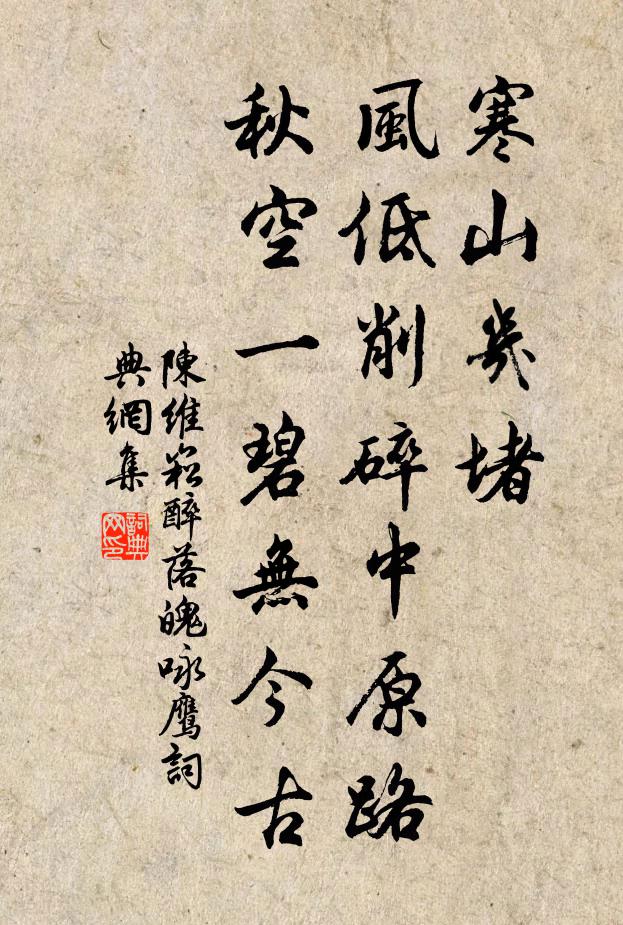 寒山幾堵
風低削碎中原路
秋空一碧無今古
陳維崧醉落魄咏鷹詞
典網集
詞典
网印